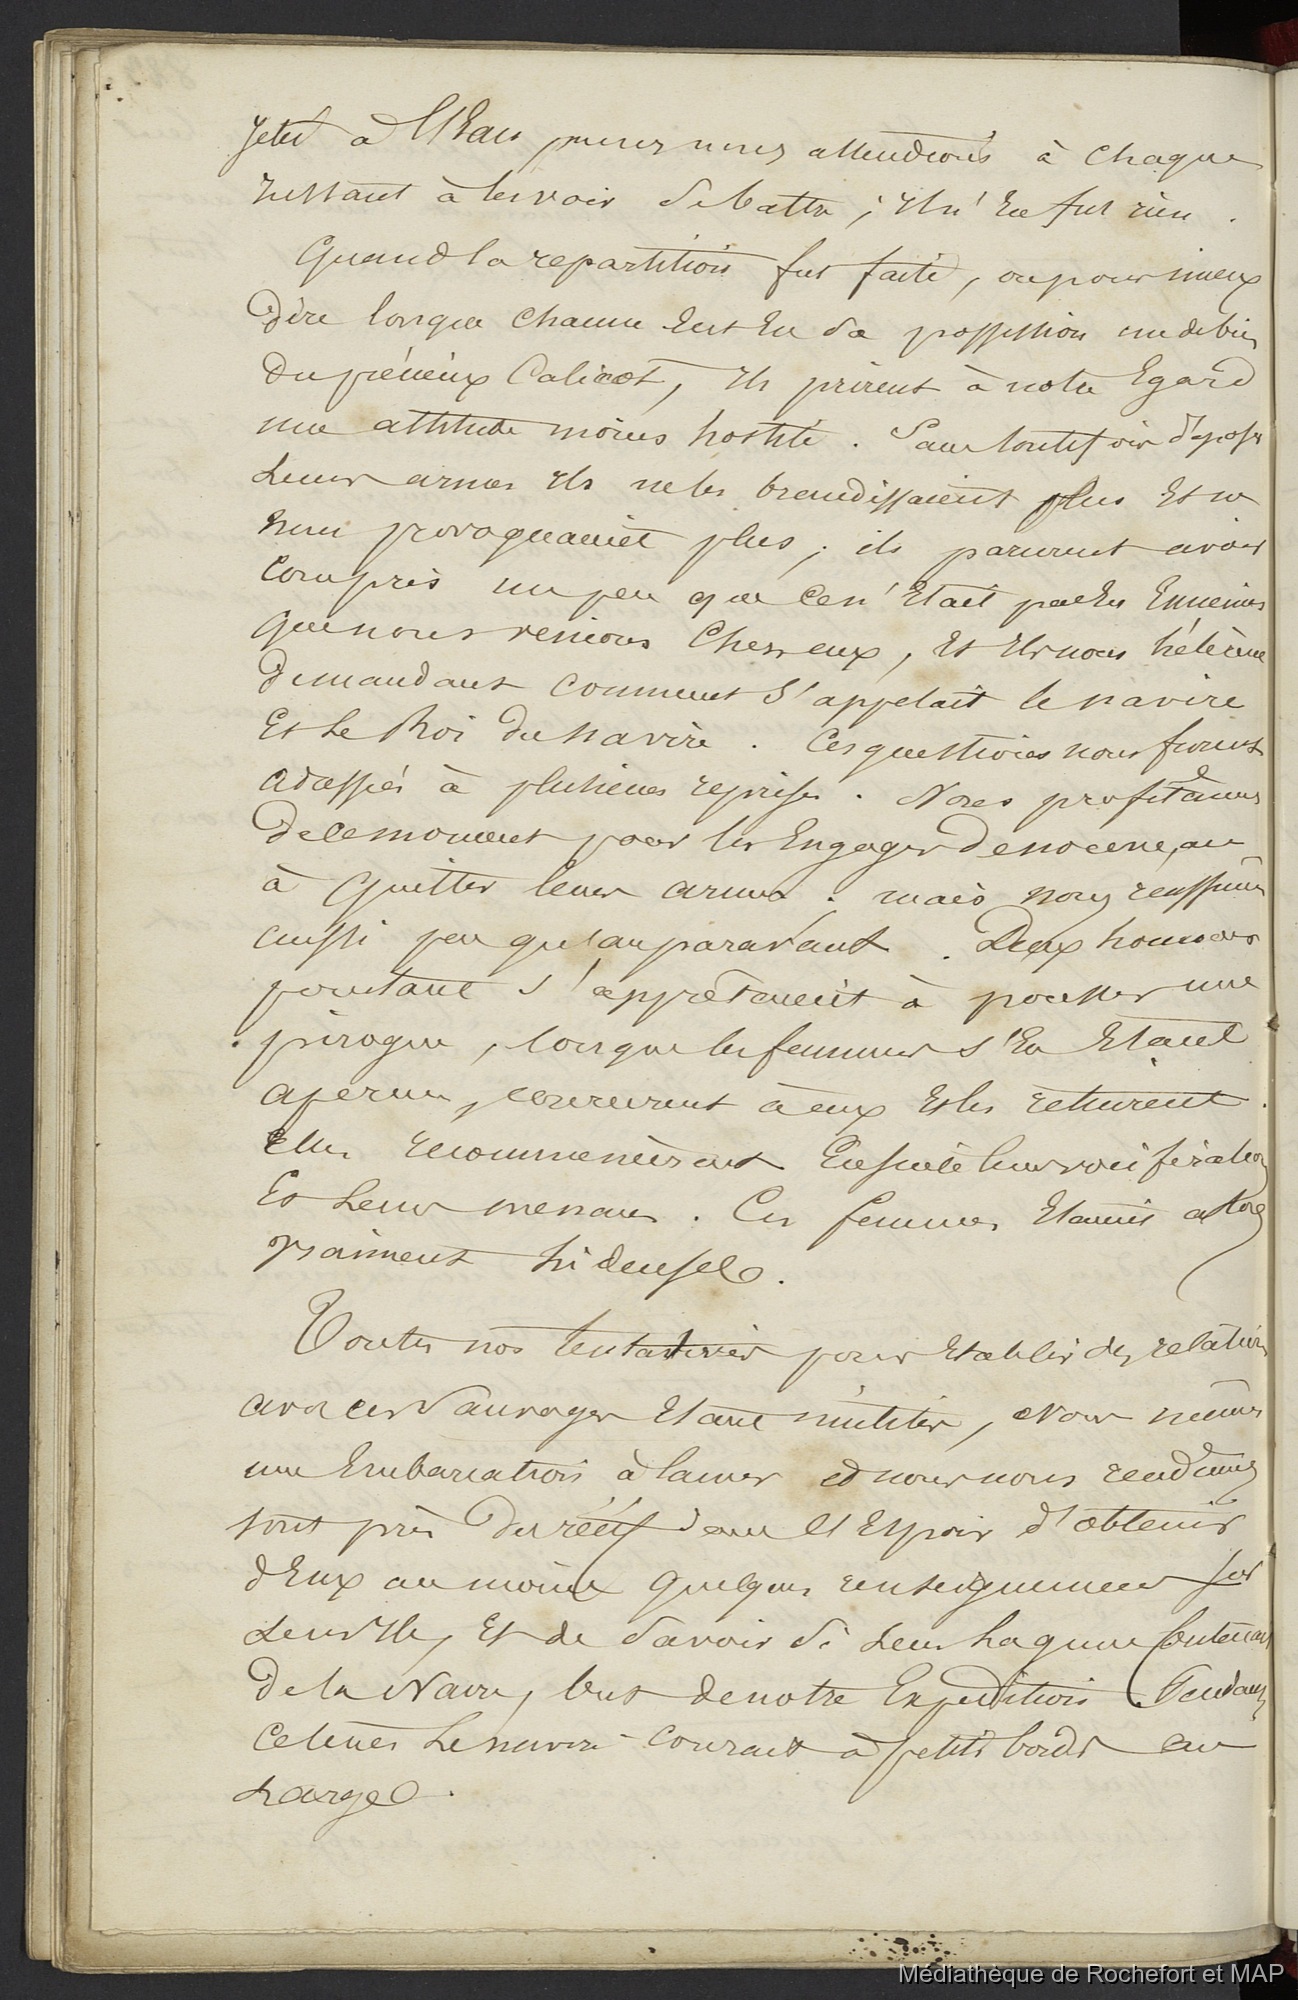 jeter à l'Eau, nous nous attendions à chaque
instant à les voir se battre ; il n'En fut rien.
Quand la repartition fut faite, ou pour mieux
dire lorsque chacun Eut En sa possession un debris
du précieux Calicot, ils prirent à notre Egard
une attitude moins hostile. Sans toutefois déposer
Leurs armes ils ne les brandissaient plus Et ne
nous provoquaient plus ; ils parurent avoir
compris un peu que ce n'Etait pas En Ennemis
que nous venions Chez eux, Et ils nous hélèrent
demandant comment s'appelait le navire
Et le Roi du navire. Ces questions nous furent
adressées à plusieurs reprises. Nous profitâmes
de ce moment pour les Engager de nouveau
à quitter leurs armes ; mais nous réussîmes
aussi peu qu'auparavant. Deux hommes
pourtant s'apprêtaient à pousser une
pirogue, lorsque les femmes s'En Etant
aperçu, coururent à eux Et les retinrent.
Elles recommencèrent Ensuite leurs vociférations
Et Leurs menaces. Ces femmes Etaient alors
vraiment hideuses.
Toutes nos tentatives pour Etablir des relations
avec ces Sauvages Etant inutiles, Nous mîmes
une Embarcation à la mer et nous nous rendîmes
tout près du récif dans l'Espoir d'obtenir
d'Eux au moins quelques renseignements sur
Leur Ile, Et de Savoir si Leur Lagune contenait
de la Nacre, but de notre Expédition. Pendant
ce temps Le navire courait à petits bords au
Large.
Médiathèque de Rochefort et MAP